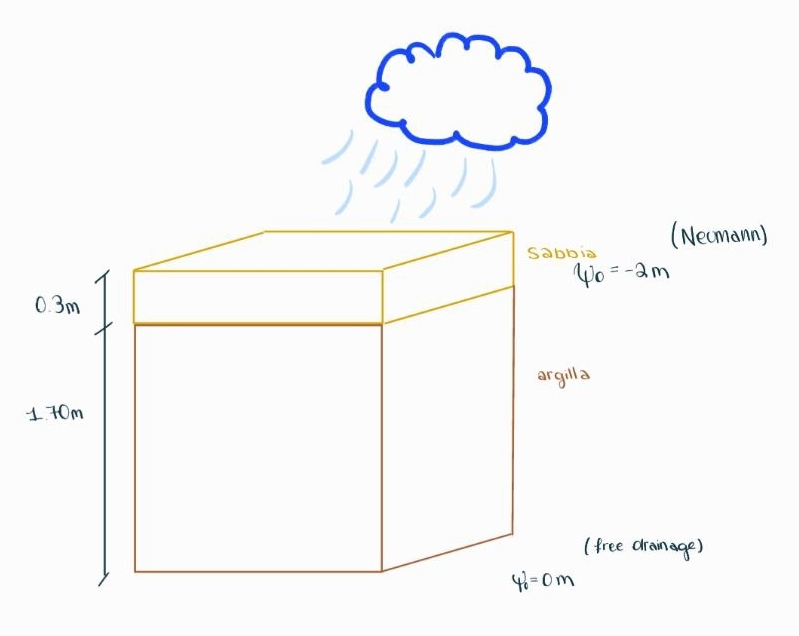 (Neumann)
sabbia
ψ₀ = -2m
0.3m
argilla
1.70m
(free drainage)
ψ₀=0m